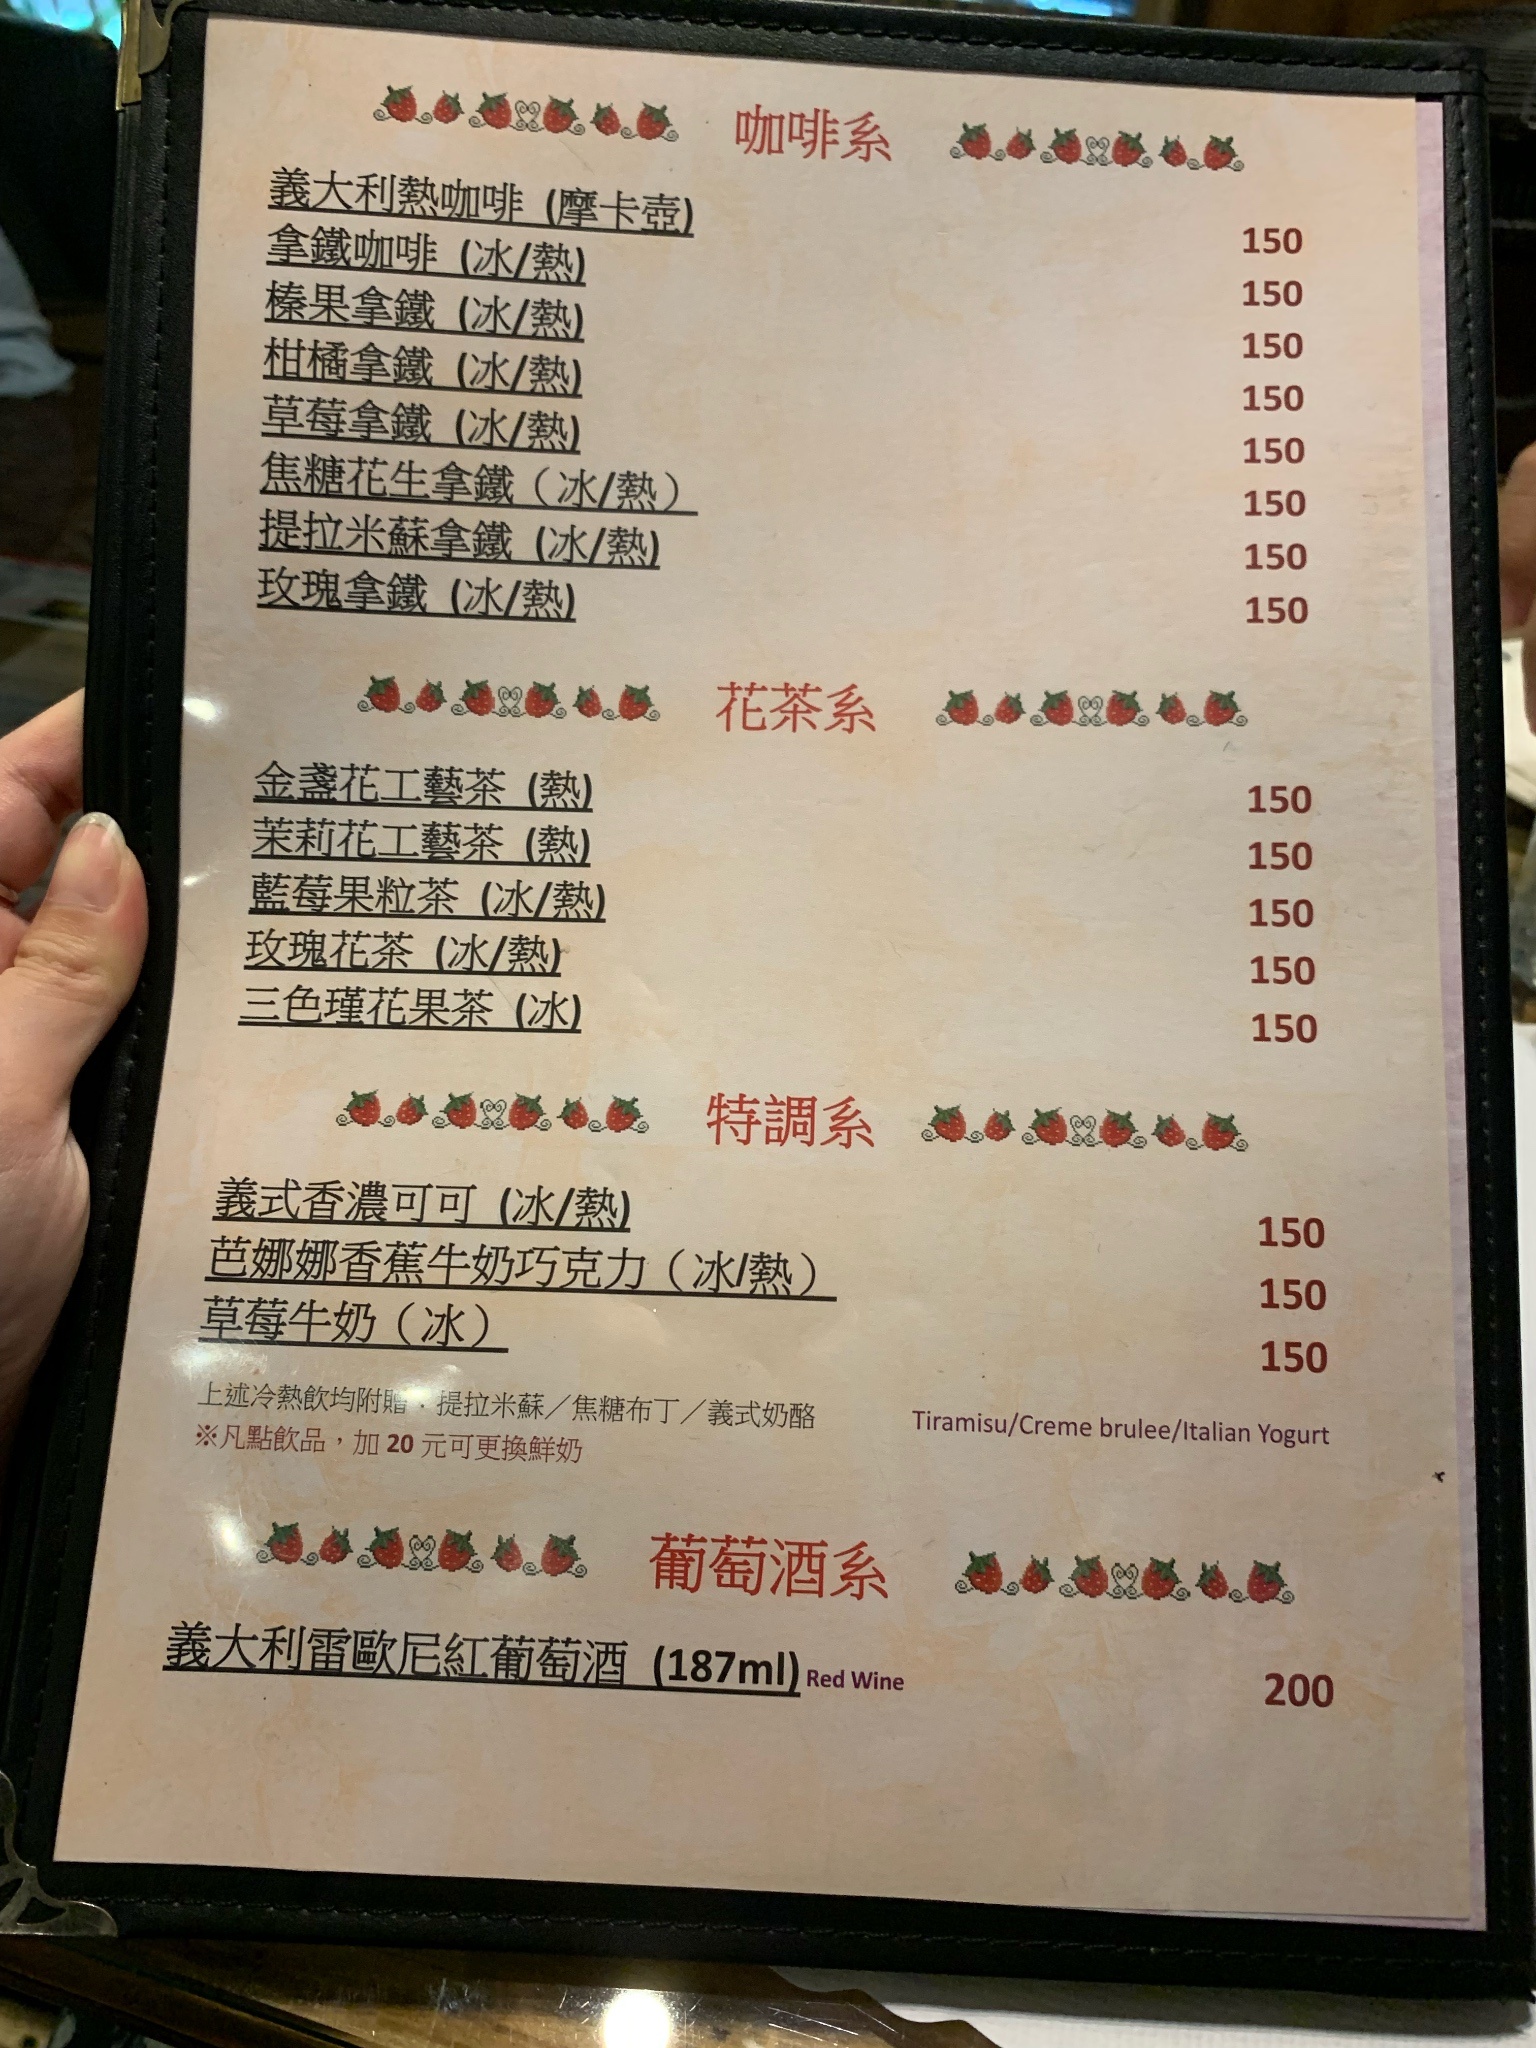 咖啡系
義大利熱咖啡 (摩卡壺) 150
拿鐵咖啡 (冰/熱) 150
榛果拿鐵 (冰/熱) 150
柑橘拿鐵 (冰/熱) 150
草莓拿鐵 (冰/熱) 150
焦糖花生拿鐵（冰/熱） 150
提拉米蘇拿鐵 (冰/熱) 150
玫瑰拿鐵 (冰/熱) 150
花茶系
金盞花工藝茶 (熱) 150
茉莉花工藝茶 (熱) 150
藍莓果粒茶 (冰/熱) 150
玫瑰花茶 (冰/熱) 150
三色瑾花果茶 (冰) 150
特調系
義式香濃可可 (冰/熱) 150
芭娜娜香蕉牛奶巧克力（冰/熱） 150
草莓牛奶（冰） 150
上述冷熱飲均附贈：提拉米蘇／焦糖布丁／義式奶酪 Tiramisu/Creme brulee/Italian Yogurt
※凡點飲品，加 20 元可更換鮮奶
葡萄酒系
義大利雷歐尼紅葡萄酒 (187ml) Red Wine 200